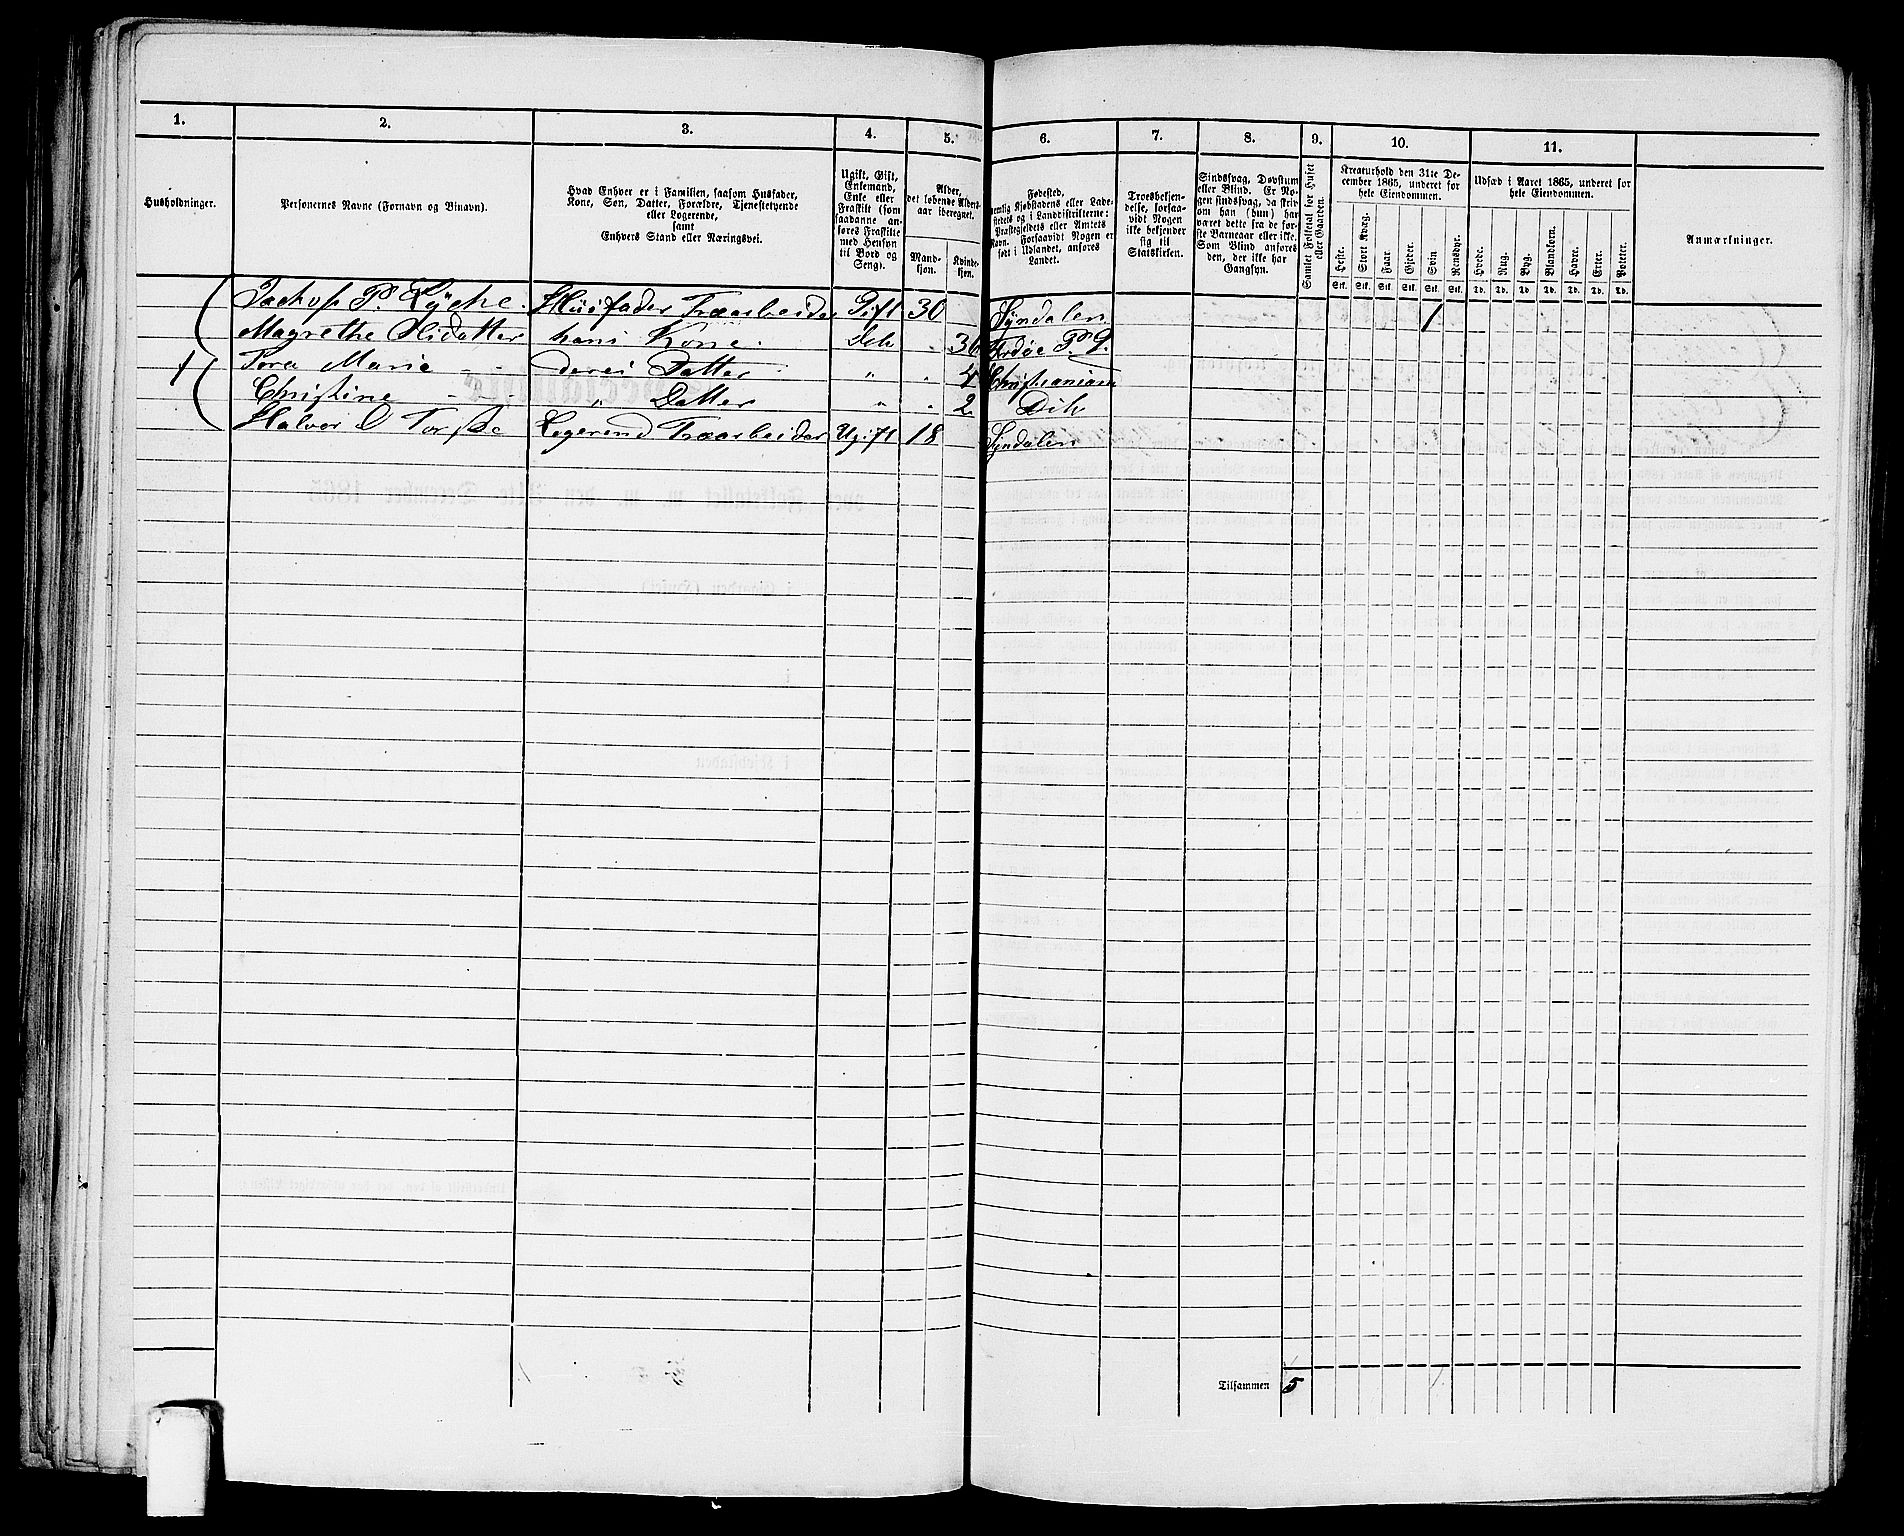 1. 2. 3. 4. 5. 6. 7. 8. 9. 10. 11.
Husholdninger.
Personernes Navne (Fornavn og Binavn).
Hvad Enhver er i Familien, saasom Husfader,
Kone, Søn, Datter, Forældre, Tjenestetyende
eller Logerende,
samt
Enhvers Stand eller Næringsvei.
Ugift, Gift,
Enkemand,
Enke eller
Fraskilt (som
saadanne an-
føres Fraskilte
med Hensyn
til Bord og
Seng).
Alder,
det løbende Alders-
aar iberegnet.
Mand-
kjøn.
Kvinde-
kjøn.
Fødested,
nemlig Kjøbstadens eller Lade-
stedets og i Landdistrikterne:
Præstegjeldets eller Amtets
Navn. Forsaavidt Nogen er
født i Udlandet, anføres
Landet.
Troesbekjen-
delse, forsaa-
vidt Nogen
ikke bekjender
sig til
Statskirken.
Sindssvag, Døvstum
eller Blind. Er No-
gen sindssvag, da skriv
om han (hun) har
været dette fra de før-
ste Barneaar eller ikke.
Som Blind anføres
den, der ikke har
Gangsyn.
Samlet Folketal for Huset
eller Gaarden.
Kreaturhold den 31te De-
cember 1865, underet for
hele Eiendommen.
Heste. Stort Kvæg. Faar. Gjeder. Svin Rensdyr.
Stk. Stk. Stk. Stk. Stk. Stk.
Udsæd i Aaret 1865, underet for
hele Eiendommen.
Hvede. Rug. Byg. Blandkorn. Havre. Erter. Poteter.
Td. Td. Td. Td. Td. Td. Td.
Anmærkninger.
Jackop P. Lyche. Huusfader Træarbeider Gift 30 Syndalen 1
Magrethe Olidatter hans Kone. Dito 36 P. G.
1 Tora Marie deres Datter " 4 Christiania
Christine " Datter " 2 Dito
Halvor O Logerend Træarbeider Ugift 18 Syndalen
Tilsammen 5 1